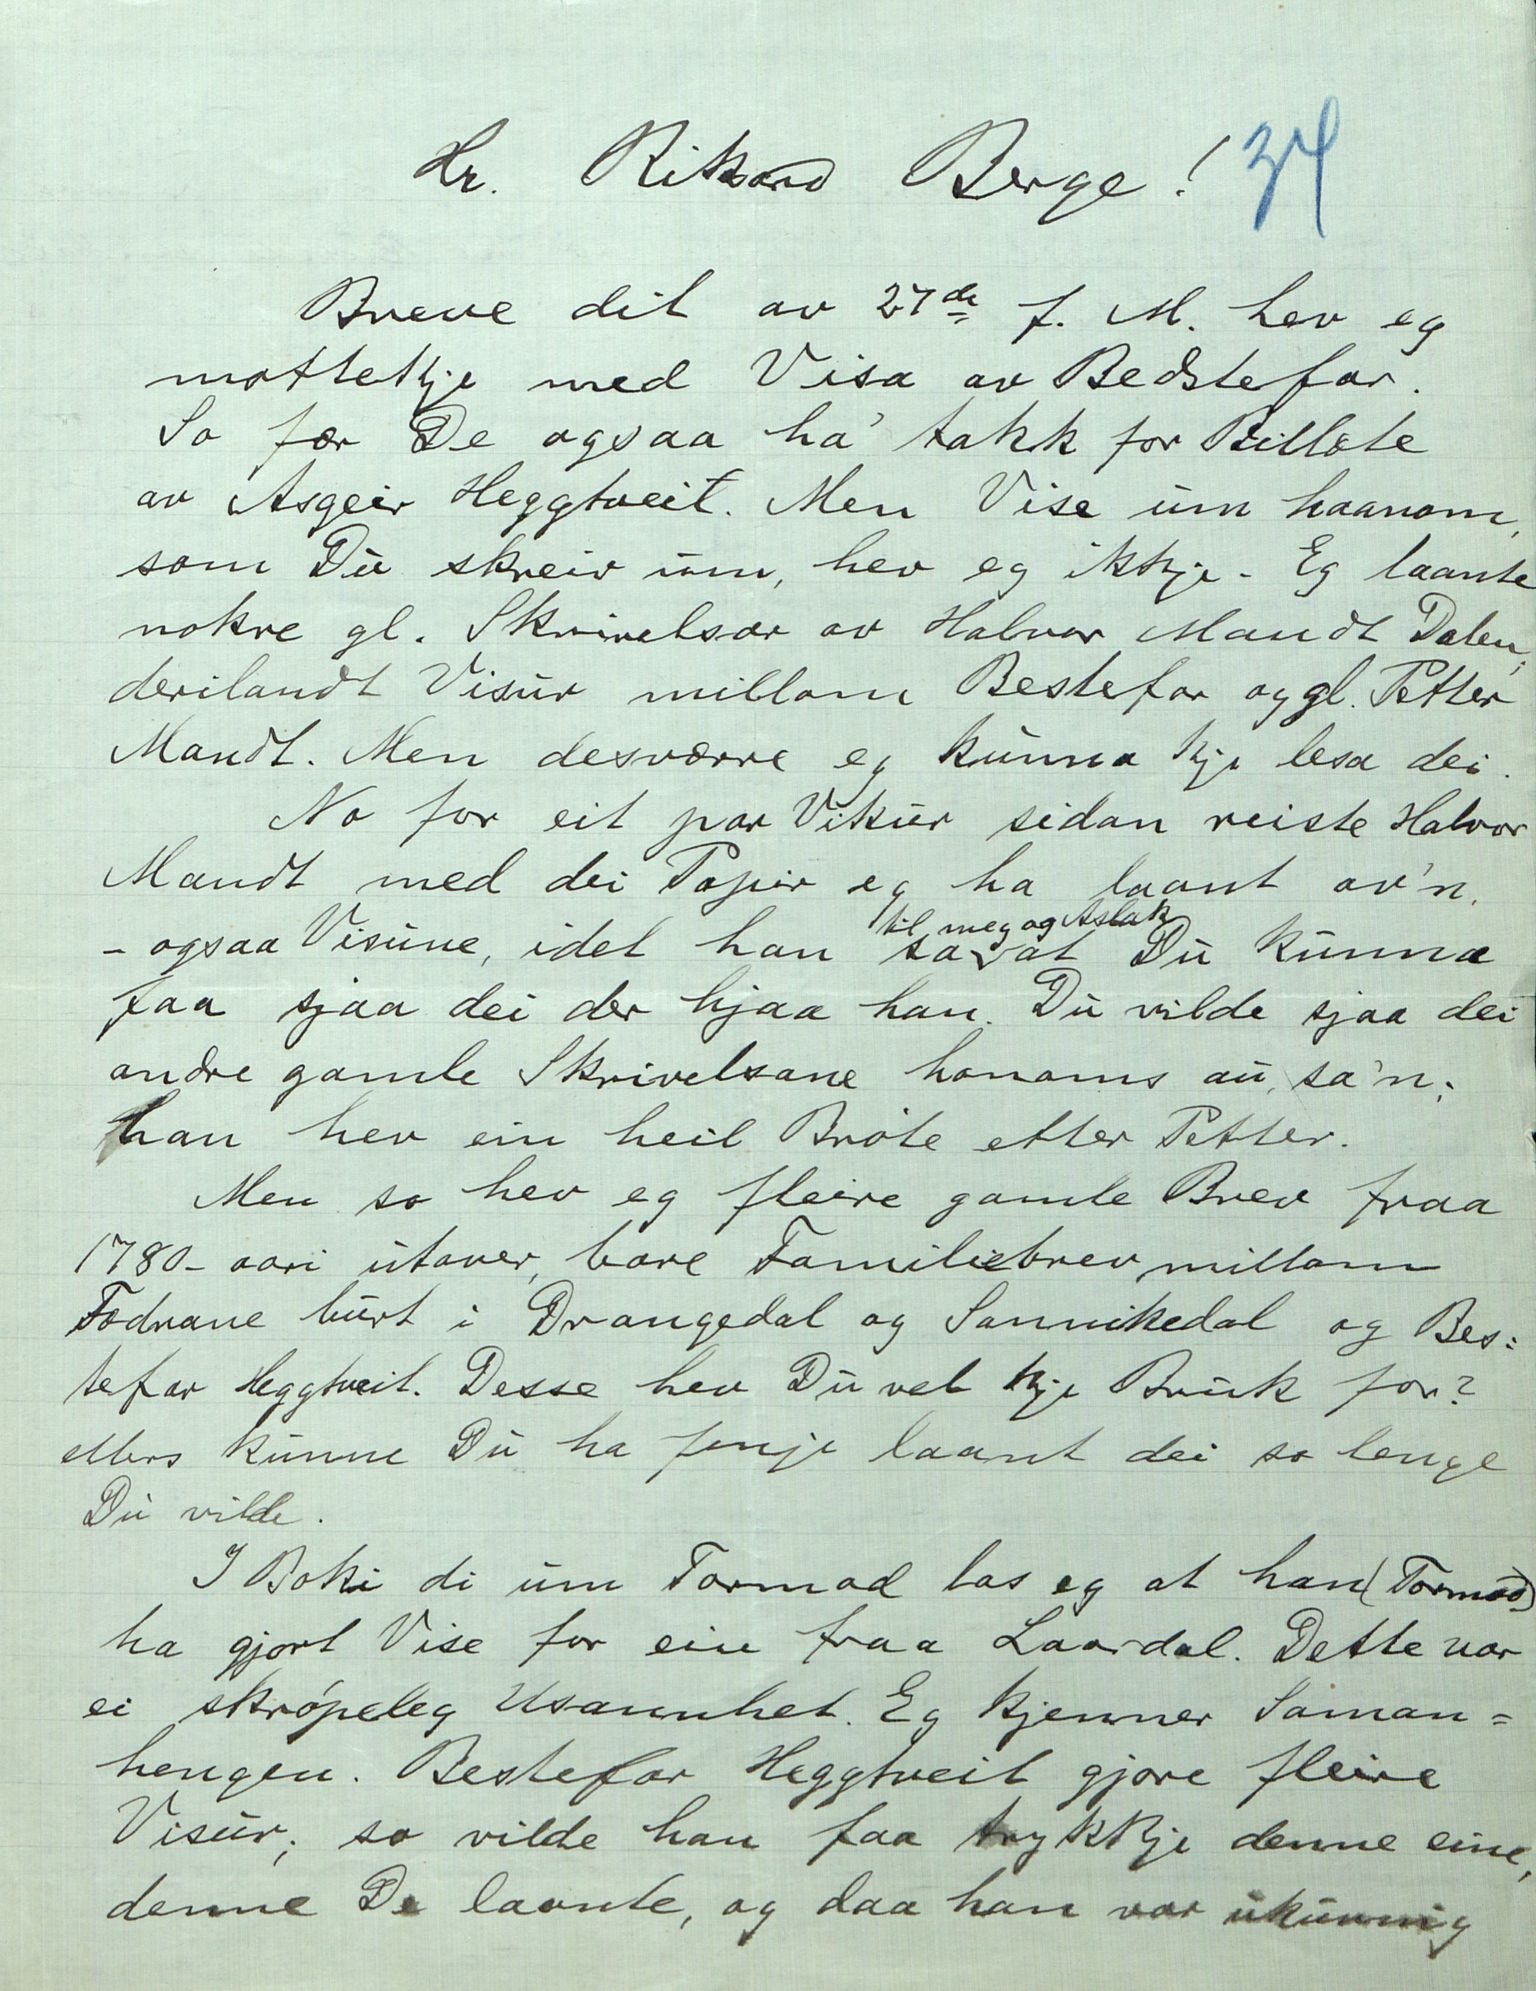 Hr. Rikard Berge! 34
Breve dit av 27de f. M. hev eg
mottekje med Visa av Bedstefar.
So fær De ogsaa ha' takk for Billæte
av Asgeir Heggtveit. Men Vise um haanom,
som Du skreiv um, hev eg ikkje. Eg laante
nokre gl. Skrivelsar av Halvor Mandt Dalen,
derilandt Visur millom Bestefar og gl. Petter
Mandt. Men desværre eg kunna kje lesa dei.
No for eit par Vikur sidan reiste Halvor
Mandt med dei Papir eg ha laant av'n.
til meg og Aslak
- ogsaa Visune, idet han sa at Du kunna
faa sjaa dei der hjaa han. Du vilde sjaa dei
andre gamle Skrivelsane honoms au, sa'n;
han hev ein heil Bróte etter Petter.
Men so hev eg fleire gamle Brev fraa
1780-aari utover, bare Familiebrev millom
Fødrane burt i Drangedal og Sannikedal og Bes:
tefar Heggtveit. Desse hev Du vel kje Bruk for?
ellers kunne Du ha fenje laant dei so lenge
Du vilde.
I Boki di um Tormod las eg at han (Tormod)
ha gjort Vise for ein fraa Laardal. Dette var
ei skrópeleg Usannhet. Eg kjenner Saman=
hengen. Bestefar Heggtveit gjore fleire
Visur; so vilde han faa trykkje denne eine,
denne De laante, og daa han var ukunnig